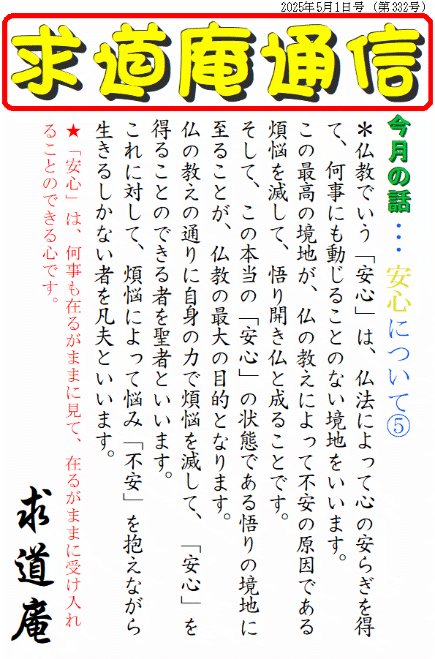 2025年5月1日号（第332号）
求道庵通信
今月の話…安心について⑤
＊仏教でいう「安心」は、仏法によって心の安らぎを得
て、何事にも動じることのない境地をいいます。
この最高の境地が、仏の教えによって不安の原因である
煩悩を滅して、悟り開き仏と成ることです。
そして、この本当の「安心」の状態である悟りの境地に
至ることが、仏教の最大の目的となります。
仏の教えの通りに自身の力で煩悩を滅して、「安心」を
得ることのできる者を聖者といいます。
これに対して、煩悩によって悩み「不安」を抱えながら
生きるしかない者を凡夫といいます。
★「安心」は、何事も在るがままに見て、在るがままに受け入れ
ることのできる心です。
求道庵